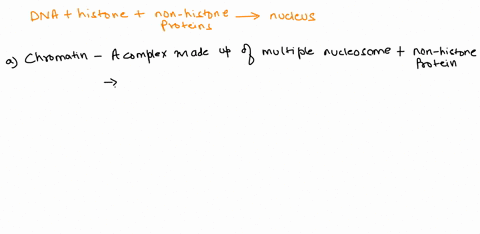 DNA + histone + non-histone proteins → nucleus
a) Chromatin - A complex made up of multiple nucleosome + non-histone protein
→